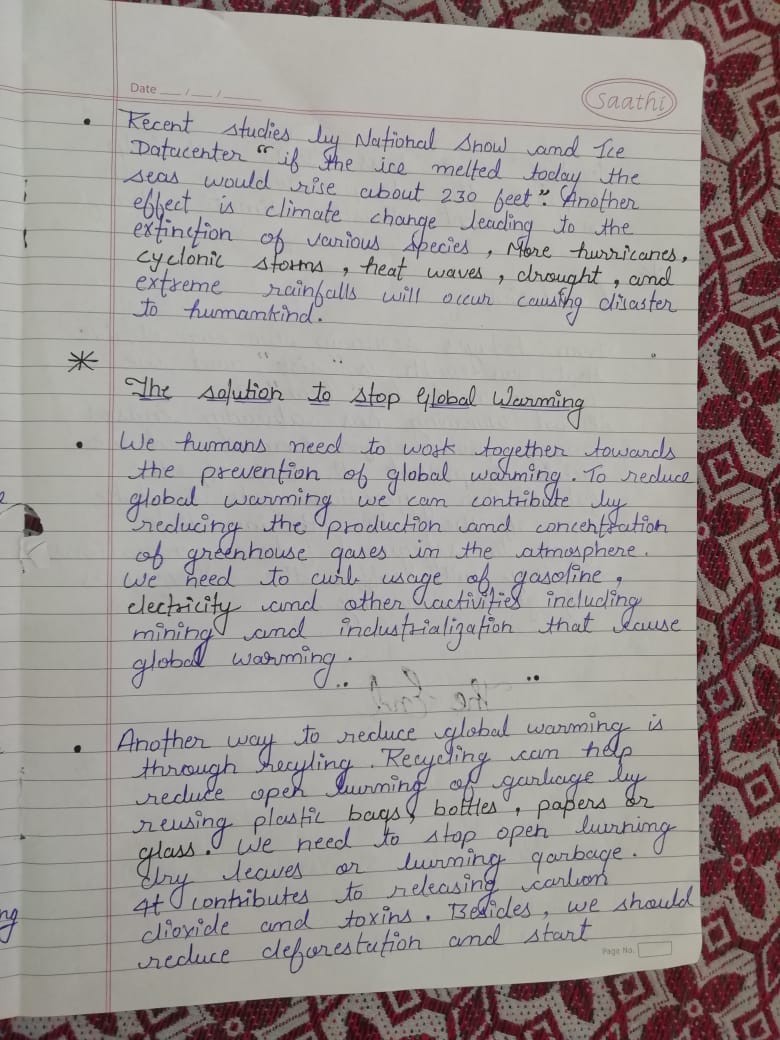 Date __/__/____
Saathi
• Recent studies by National Snow and Ice
Datacenter "if the ice melted today the
seas would rise about 230 feet". Another
effect is climate change leading to the
extinction of various species, More hurricanes,
cyclonic storms, heat waves, drought, and
extreme rainfalls will occur causing disaster
to humankind.
* The solution to stop Global Warming
• We humans need to work together towards
the prevention of global warming. To reduce
global warming we can contribute by
reducing the production and concentration
of greenhouse gases in the atmosphere.
We need to curb usage of gasoline,
electricity and other activities including
mining and industrialization that cause
global warming.
• Another way to reduce global warming is
through recyling. Recycling can help
reduce open burning of garbage by
reusing plastic bags, bottles, papers or
glass. We need to stop open burning
dry leaves or burning garbage.
It contributes to releasing carbon
dioxide and toxins. Besides, we should
reduce deforestution and start
Page No.